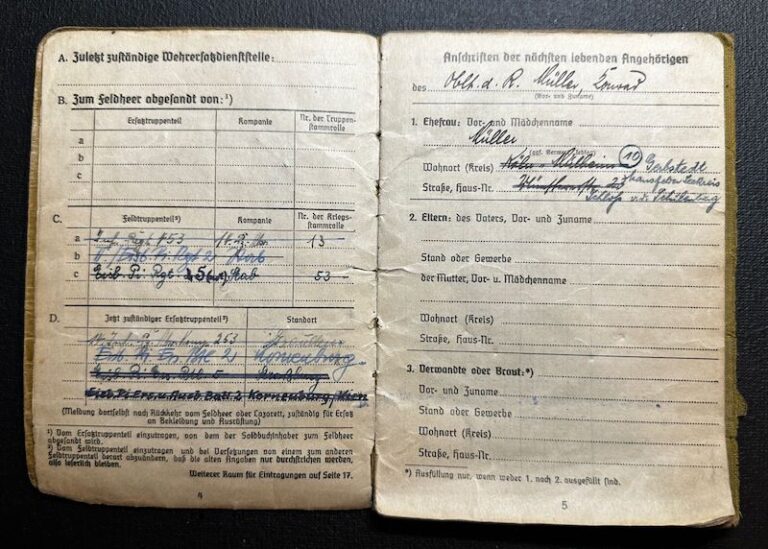 A. Zuletzt zuständige Wehrersatzdienststelle:
B. Zum Feldheer abgesandt von:¹)
Ersatztruppenteil Kompanie Nr. der Truppenstammrolle
a
b
c
C. Feldtruppenteil²) Kompanie Nr. der Kriegsstammrolle
a 13
b Pi. Rgt 2 Stab
c Eisb. Pi. Rgt. 5 Stab 53
D. Jetzt zuständiger Ersatztruppenteil²) Standort
253
Eisb. Pi. Ers. Btl. 2 Korneuburg
Eisb. Pi. Ers. Btl. 5
Eisb. Pi. Ers. u. Ausb. Batl. 2 Korneuburg/Wien
(Meldung dortselbst nach Rückkehr vom Feldheer oder Lazarett, zuständig für Ersatz
an Bekleidung und Ausrüstung)
¹) Vom Ersatztruppenteil einzutragen, von dem der Soldbuchinhaber zum Feldheer
abgesandt wird.
²) Vom Feldtruppenteil einzutragen und bei Versetzungen von einem zum anderen
Feldtruppenteil derart abzuändern, daß die alten Angaben nur durchstrichen werden,
also leserlich bleiben.
Weiterer Raum für Eintragungen auf Seite 17.
4
Anschriften der nächsten lebenden Angehörigen
des Oblt. d. R. Müller, Konrad
(Vor- und Zuname)
1. Ehefrau: Vor- und Mädchenname
Müller
Wohnort (Kreis) Köln - Mülheim 19 Gerbstedt
Straße, Haus-Nr. 23 Mansfelder Seekreis
Schloss v. d. Schulenburg
2. Eltern: des Vaters, Vor- und Zuname
Stand oder Gewerbe
der Mutter, Vor- u. Mädchenname
Wohnort (Kreis)
Straße, Haus-Nr.
3. Verwandte oder Braut:*)
Vor- und Zuname
Stand oder Gewerbe
Wohnort (Kreis)
Straße, Haus-Nr.
*) Ausfüllung nur, wenn weder 1. noch 2. ausgefüllt sind.
5